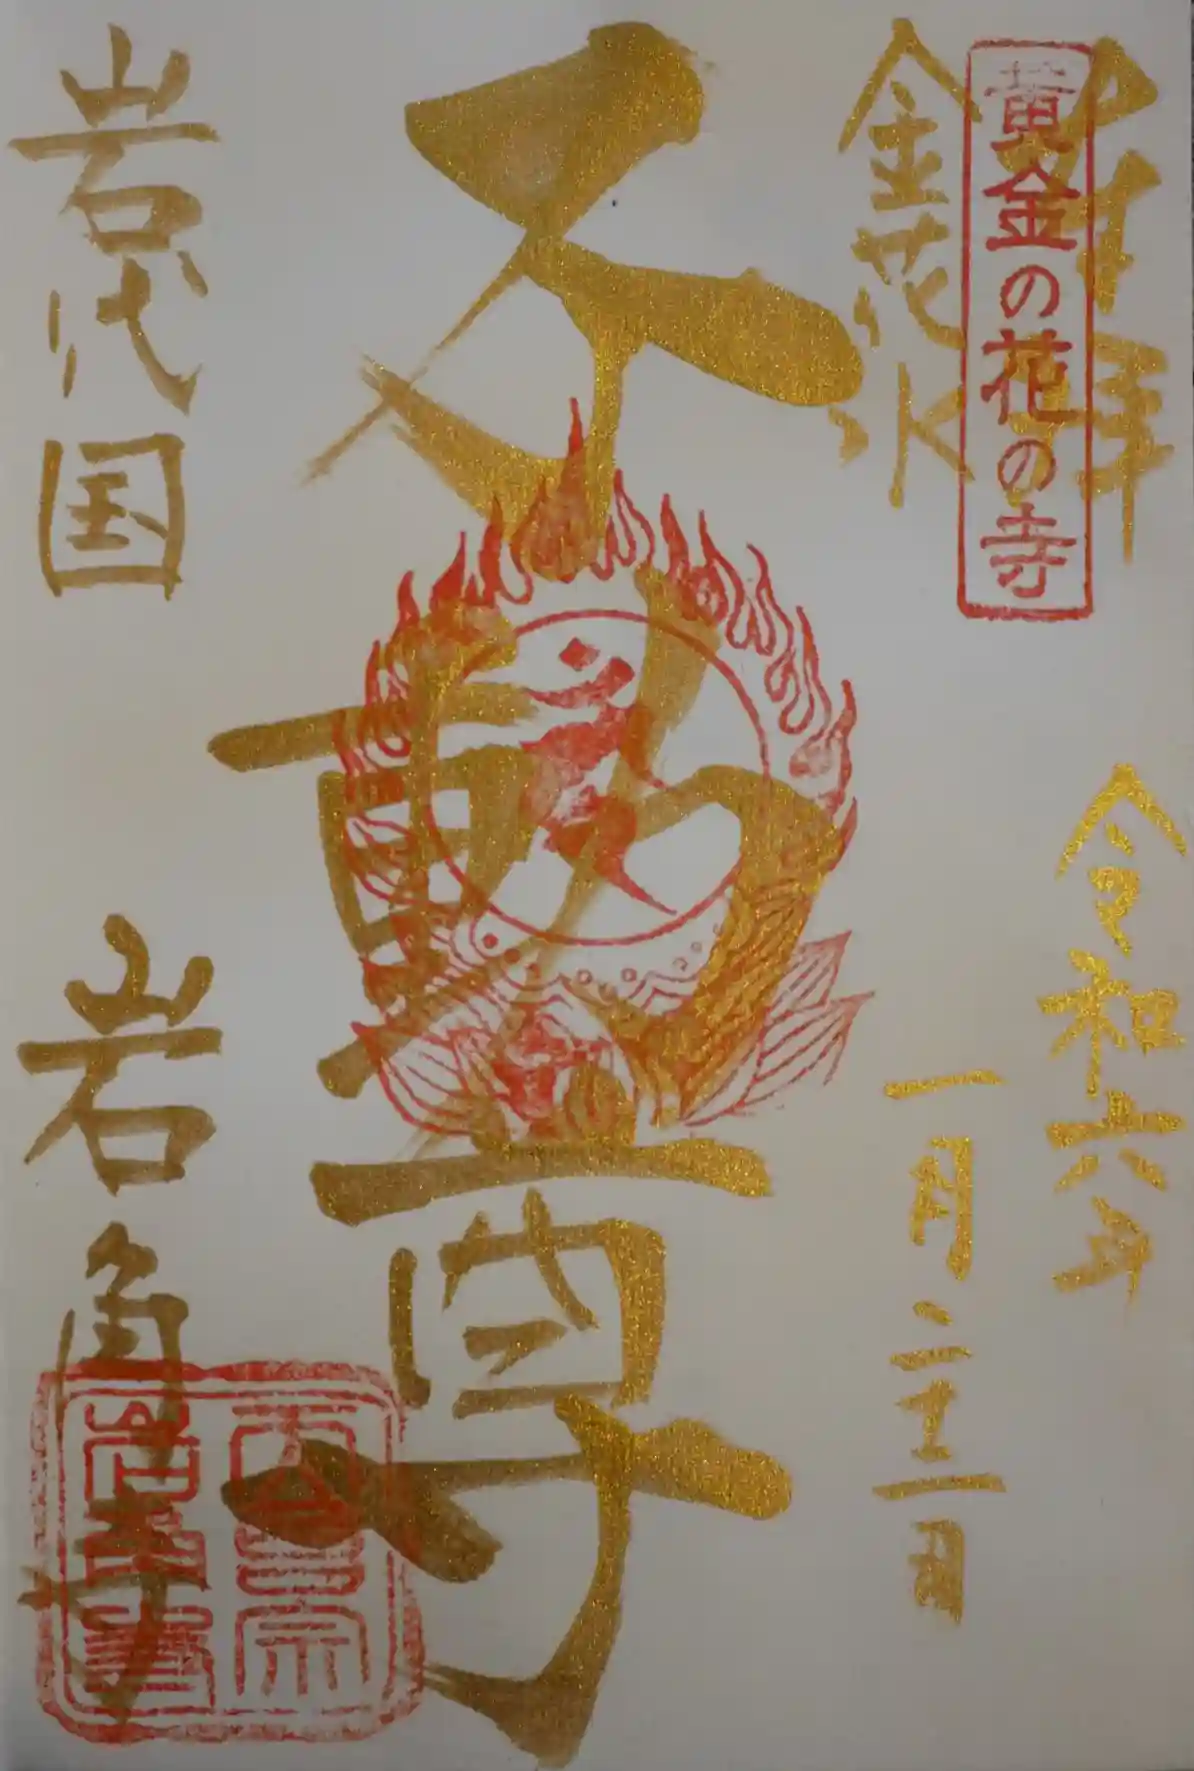 奉拝
黄金の花の寺
金花水
令和六年
一月二十二日
不動尊
岩代国 岩角寺
天台宗
岩角寺